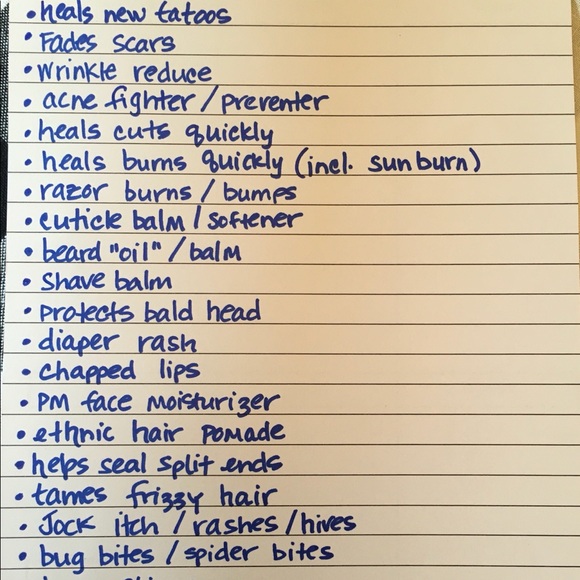 • heals new tatoos
• Fades scars
• Wrinkle reduce
• acne fighter / preventer
• heals cuts quickly
• heals burns quickly (incl. sunburn)
• razor burns / bumps
• cuticle balm / softener
• beard "oil" / balm
• Shave balm
• protects bald head
• diaper rash
• chapped lips
• PM face moisturizer
• ethnic hair pomade
• helps seal split ends
• tames frizzy hair
• Jock itch / rashes / hives
• bug bites / spider bites